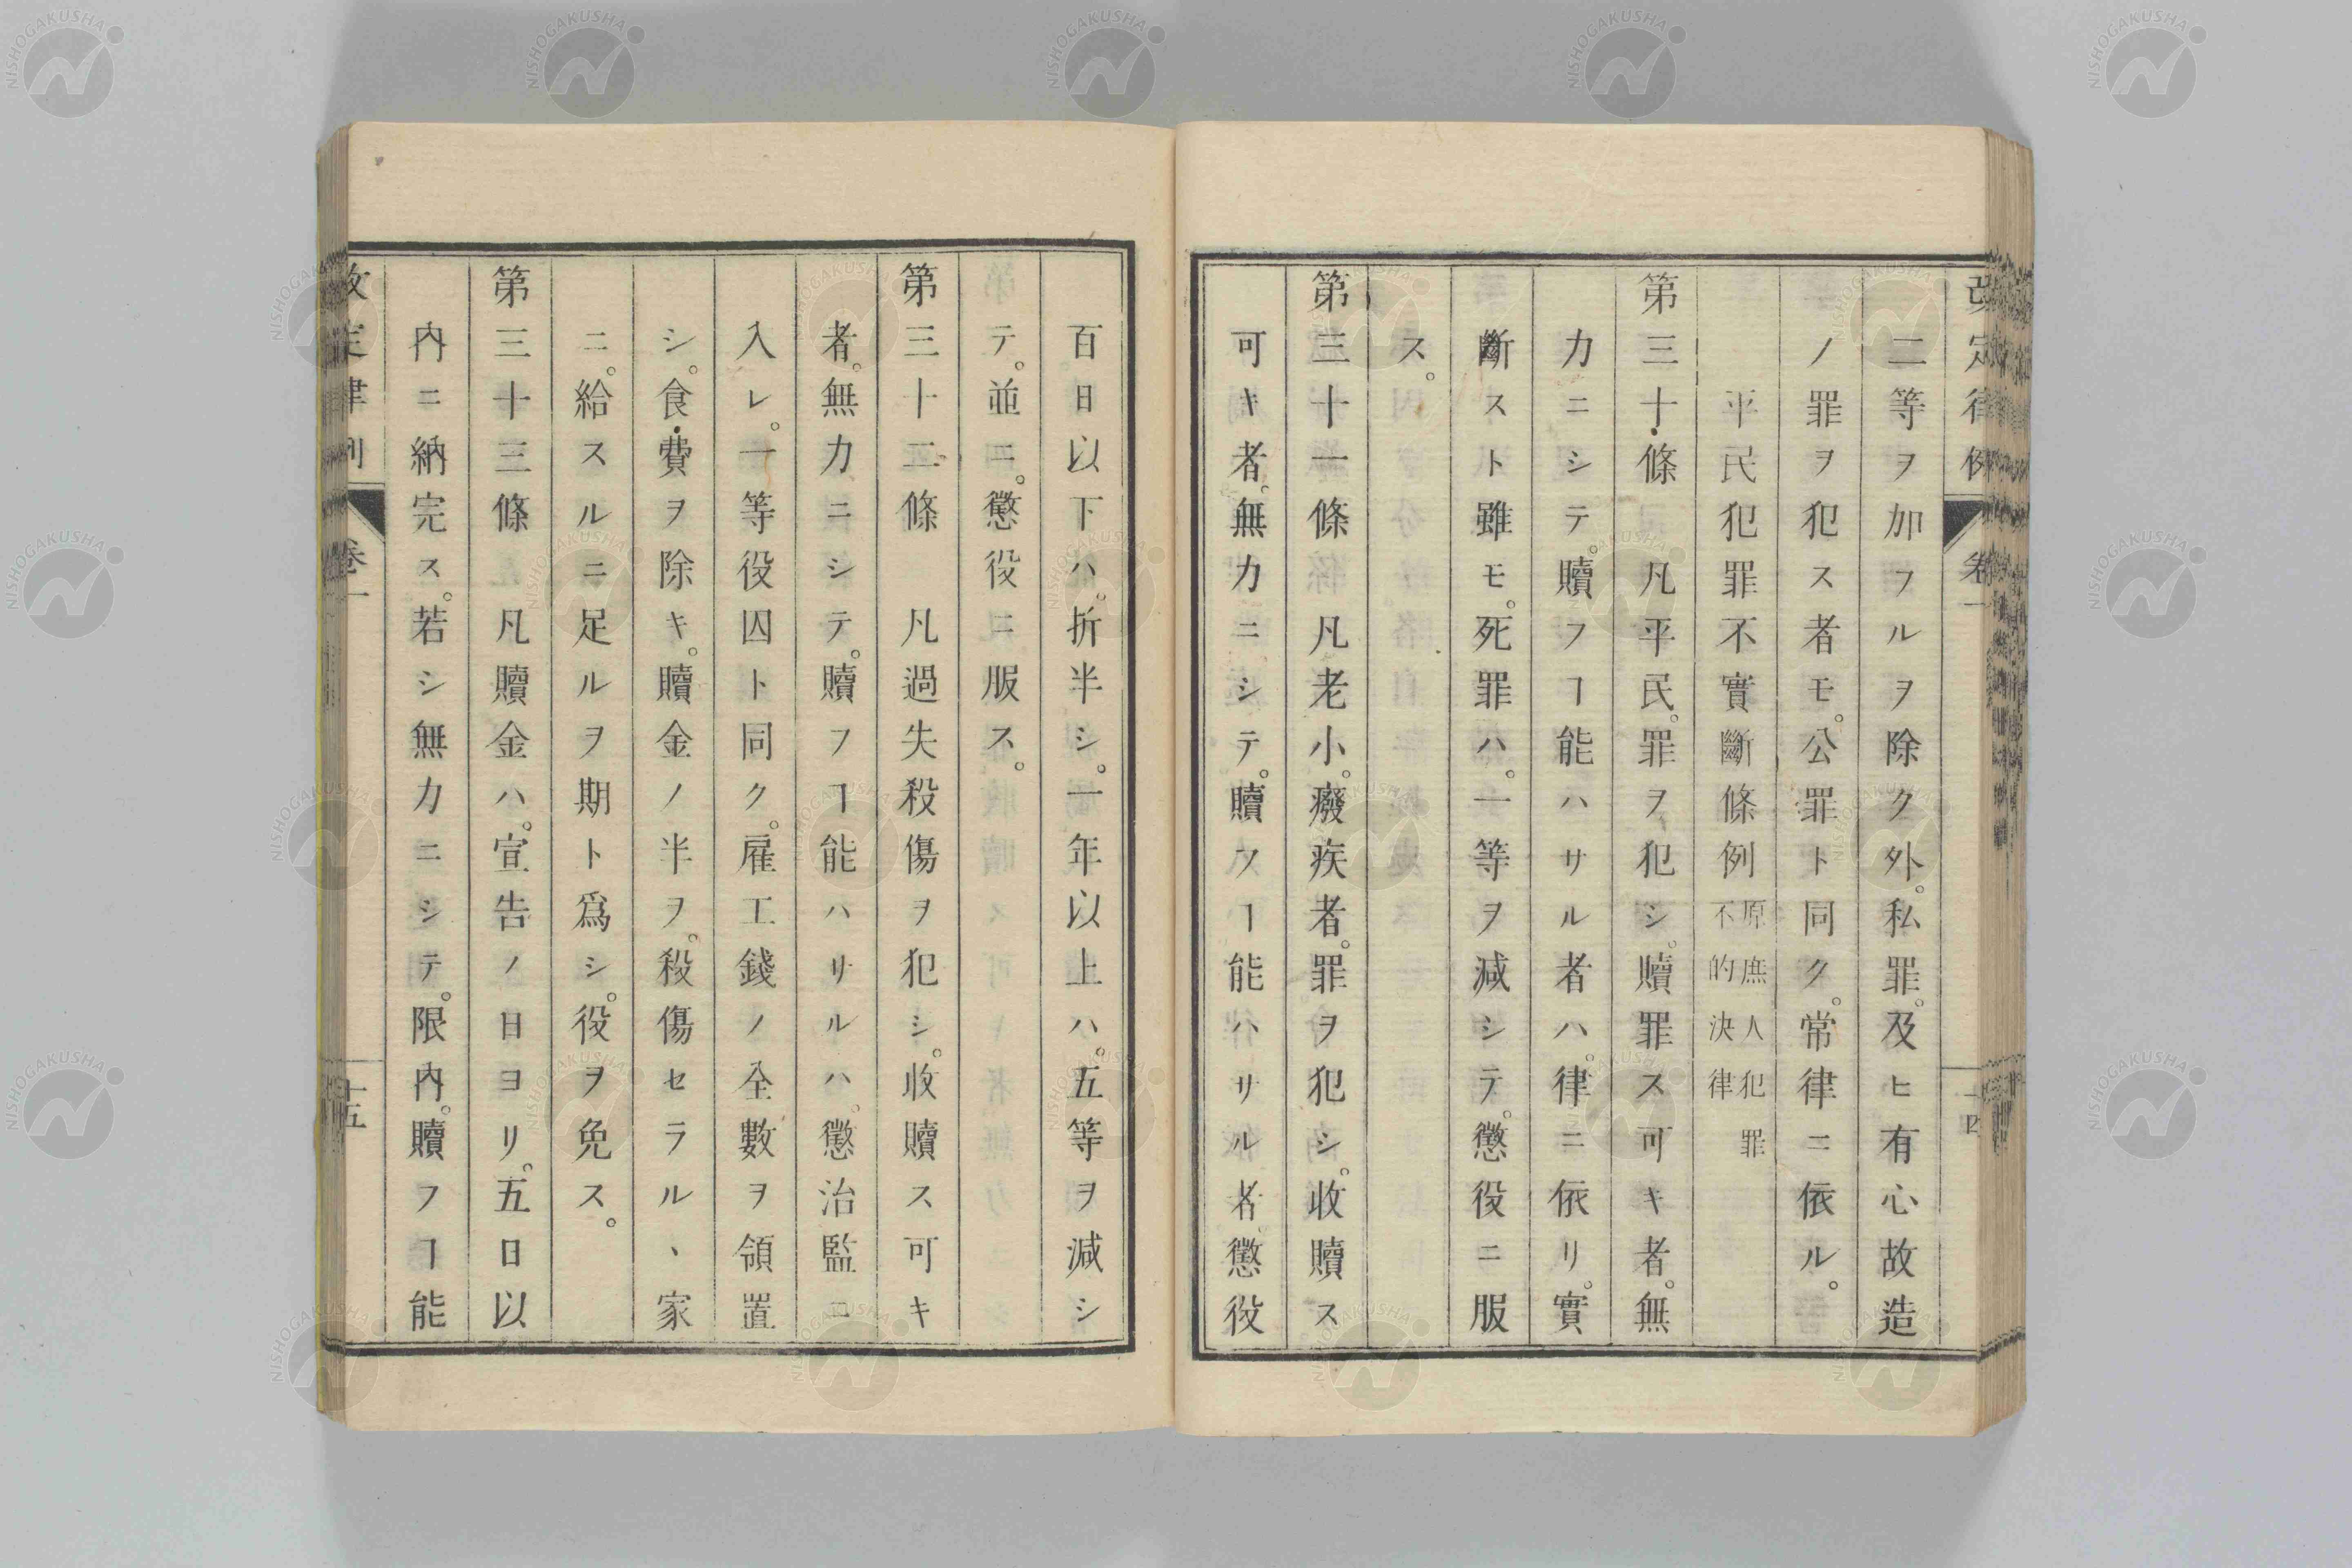 改定律例 卷一 十四
二等ヲ加フルヲ除ク外。私罪。及ヒ有心故造
ノ罪ヲ犯ス者モ。公罪ト同ク。常律ニ依ル。
平民犯罪不實斷條例 原庶人犯罪不的決律
第三十條 凡平民。罪ヲ犯シ。贖罪ス可キ者。無
力ニシテ。贖フヿ能ハサル者ハ。律ニ依リ。實
斷スト雖モ。死罪ハ。一等ヲ減シテ。懲役ニ服
ス。
第三十一條 凡老小。癈疾者。罪ヲ犯シ。收贖ス
可キ者。無力ニシテ。贖フヿ能ハサル者。懲役
百日以下ハ。折半シ。一年以上ハ。五等ヲ減シ
テ。並ニ。懲役ニ服ス。
第三十二條 凡過失殺傷ヲ犯シ。收贖ス可キ
者。無力ニシテ。贖フヿ能ハサルハ。懲治監ニ
入レ。一等役囚ト同ク。雇工錢ノ全數ヲ領置
シ。食費ヲ除キ。贖金ノ半ヲ。殺傷セラルヽ家
ニ。給スルニ足ルヲ期ト爲シ。役ヲ免ス。
第三十三條 凡贖金ハ。宣告ノ日ヨリ。五日以
内ニ納完ス。若シ無力ニシテ。限内。贖フヿ能
改定律例 卷一 十五
NISHOGAKUSHA